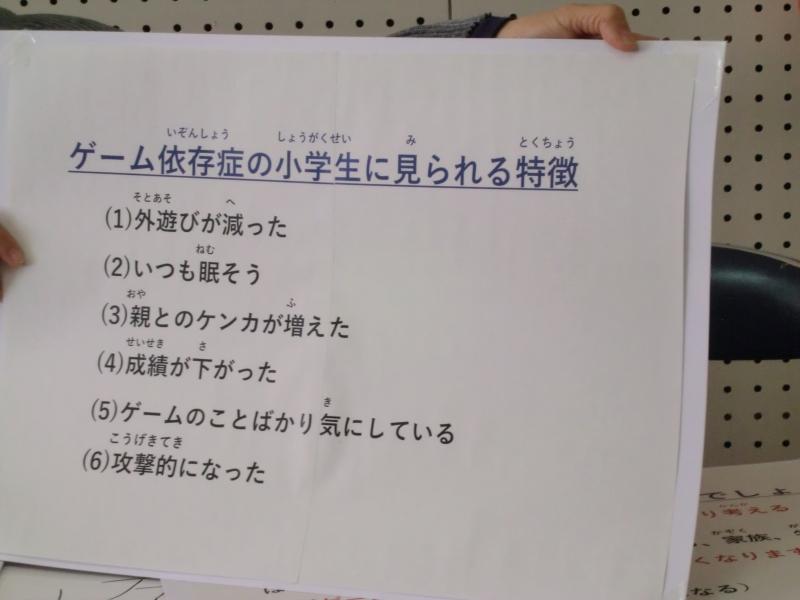 ゲーム依存症の小学生に見られる特徴
いぞんしょう しょうがくせい み とくちょう
(1)外遊びが減った
そとあそ へ
(2)いつも眠そう
ねむ
(3)親とのケンカが増えた
おや ふ
(4)成績が下がった
せいせき さ
(5)ゲームのことばかり気にしている
き
(6)攻撃的になった
こうげきてき
でしょ
り考える
かんが
、家族、
かぞく
くなります
なる)
は